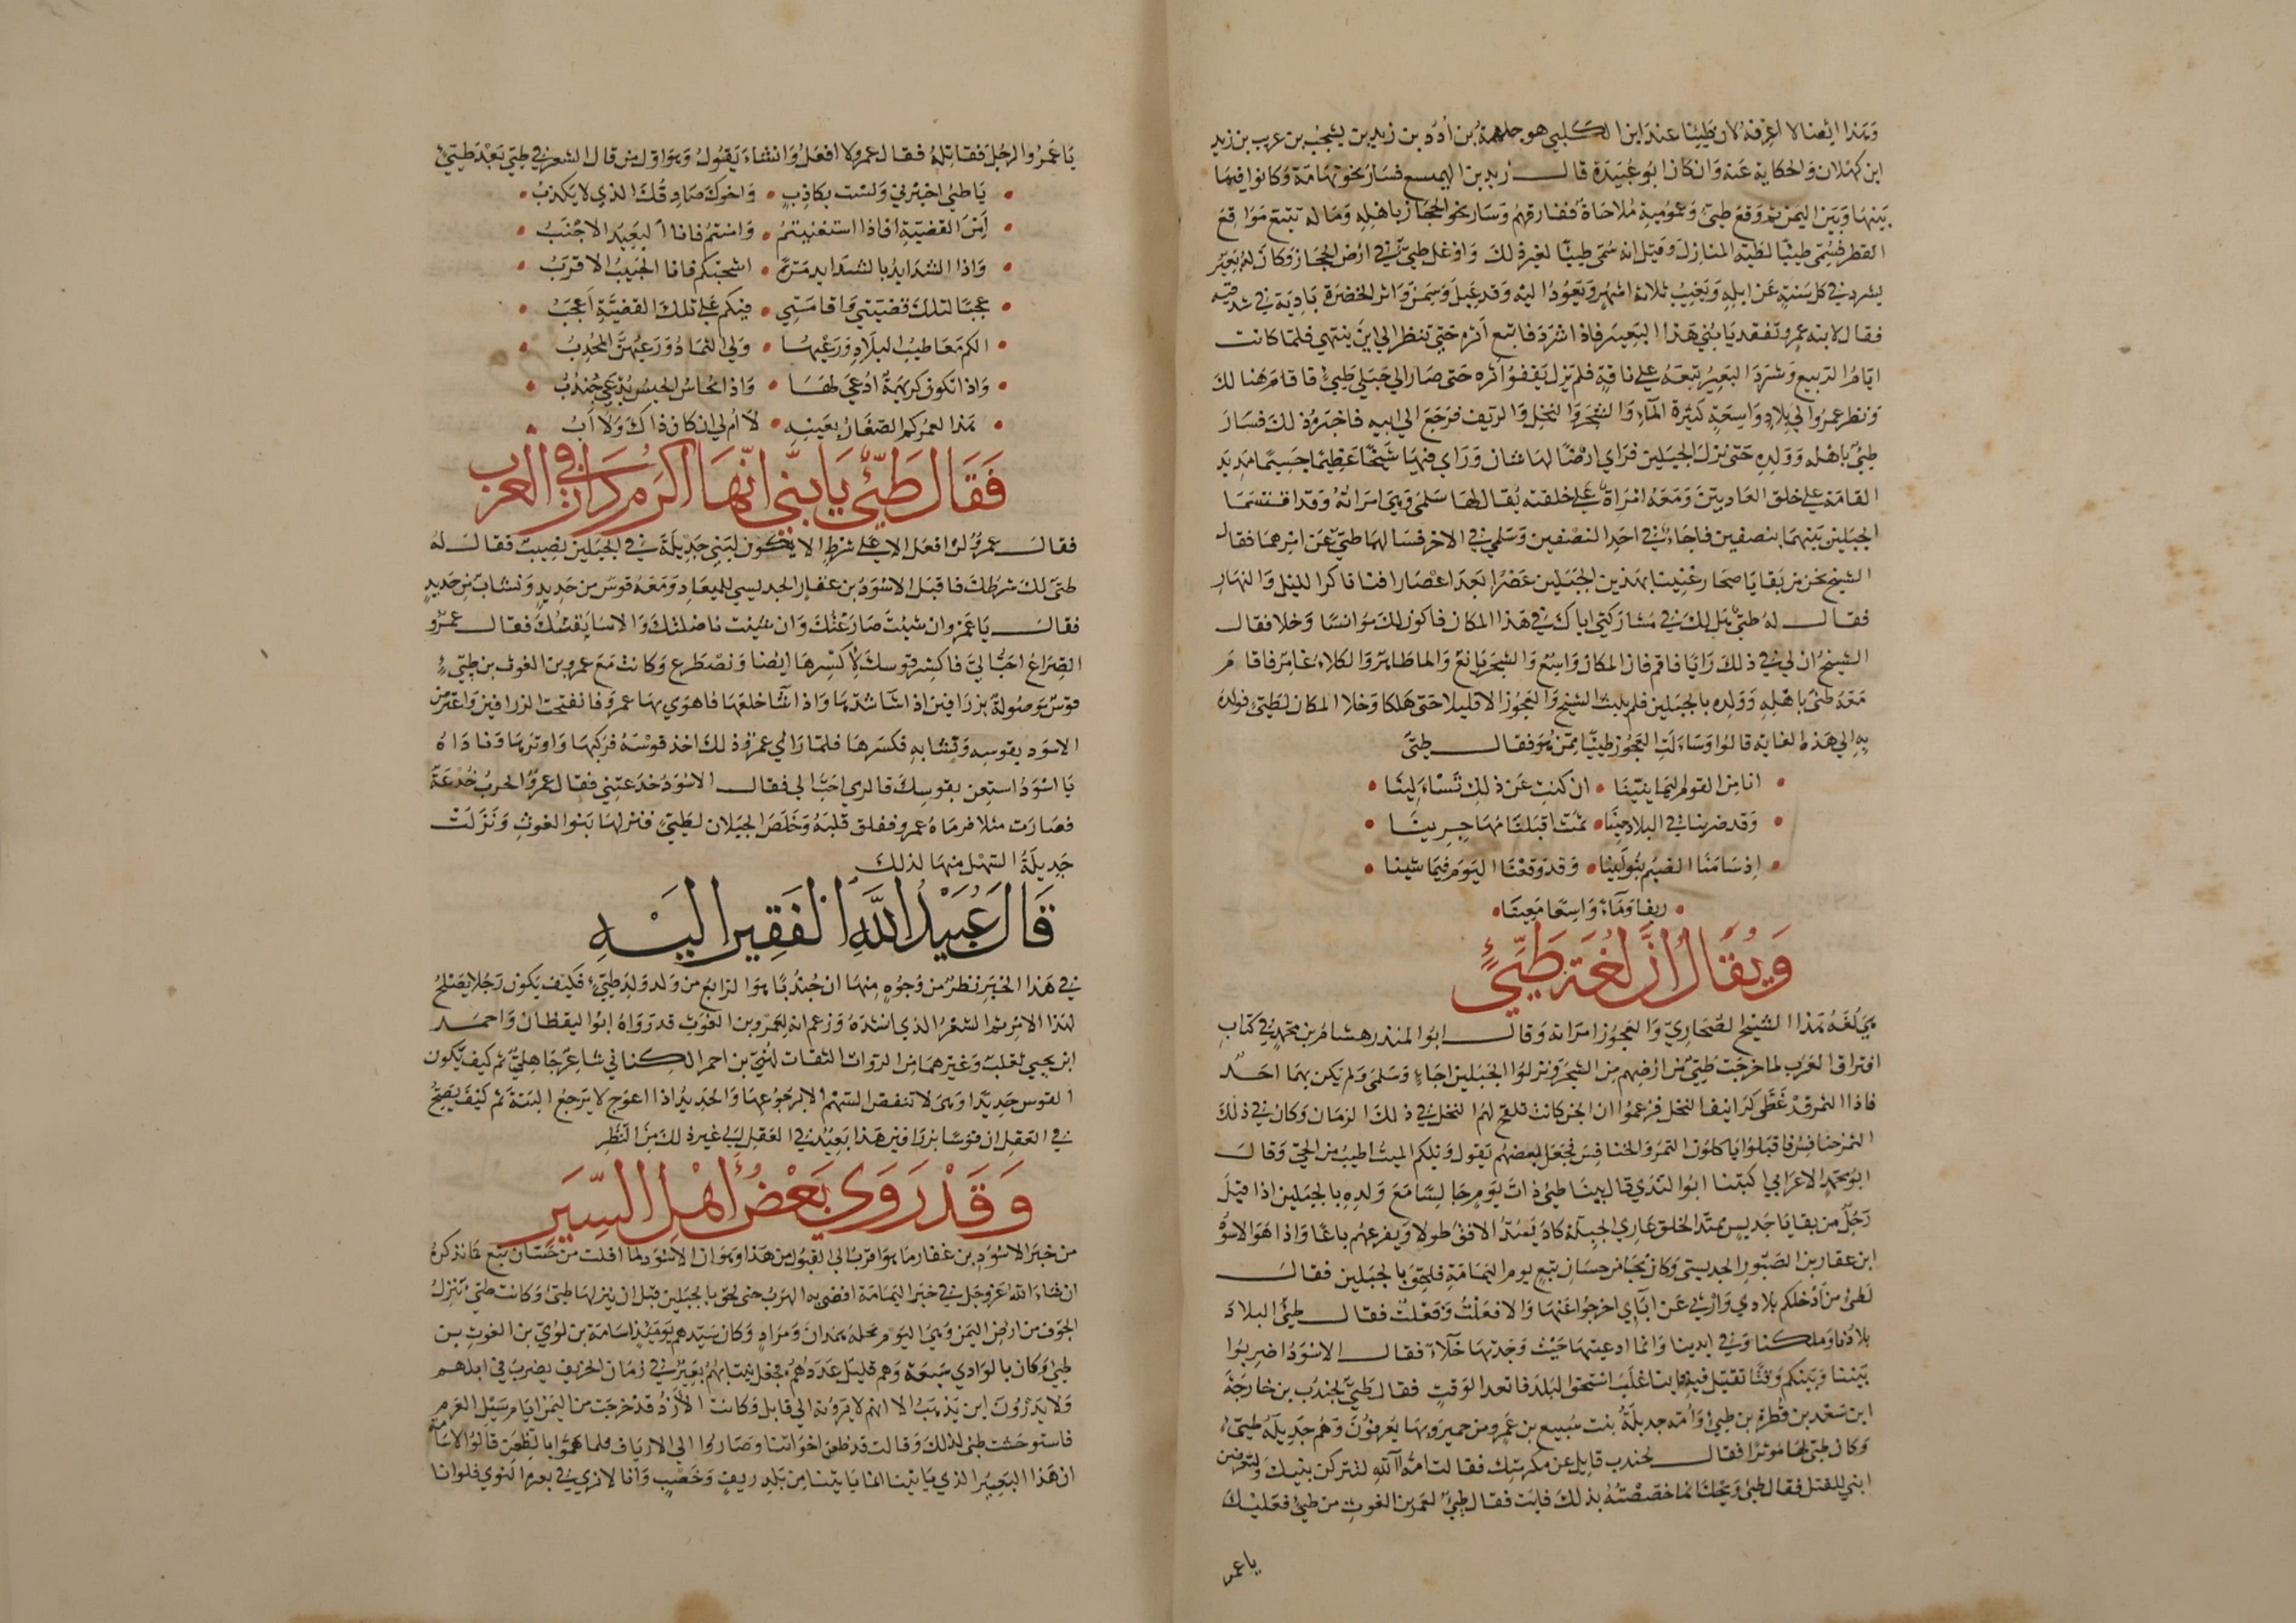 وهذا ايضا لا اعرفه لان طيئا عند ابن الكلبي هو جلهمة بن ادد بن زيد بن يشجب بن عريب بن زيد
ابن كهلان والحكاية عنه وان كان ابو عبيدة قال زيد بن الهميسع فسار نحو تهامة وكانوا فيما
بينها وبين اليمن ثم وقع طيئ وعمومته ملاحاة ففارقهم وسار نحو الحجاز باهله وماله تتبع مواقع
القطر فسمى طيئا لطيه المنازل وقيل انه سمى طيئا لغير ذلك واوغل طيئ في ارض الحجاز وكان له بعير
يشرد في كل سنة عن ابله ويغيب ثلاثة اشهر ويعود اليه وقد عبل وسمن واثر الخضرة بادية في شدقيه
فقال لابنه عمرو تفقد يا بني هذا البعير فاذا شرد فاتبع اثره حتى تنظر الي اين ينتهي فلما كانت
ايام الربيع وشرد البعير تبعه على ناقة فلم يزل يقفوا اثره حتى صار الي جبلي طيئ فاقام هنالك
ونظر عمروا الي بلاد واسعة كثيرة الماء والشجر والنخل والريف فرجع الي ابيه فاخبره ذلك فسار
طيئ باهله وولده حتى نزل الجبلين فراي ارضا لها شان وراي فيها شيخا عظيما جسيما مديد
القامة على خلق العاديين ومعه امراة على خلقته يقال لها سلمى وهي امراته وقد اقتسما
الجبلين بينهما بنصفين فاجاء في احد النصفين وسلمي في الاخر فسالهما طيئ عن امرهما فقال
الشيخ نحن من بقايا صحار غنينا بهذين الجبلين عصرا بعد اعصار افنانا كر الليل والنهار
فقال له طيئ هل لك في مشاركتي اياك في هذا المكان فاكون لك موانسا وخلا فقال
الشيخ ان لي في ذلك رايا فاقم فان المكان واسع والشجر يانع والماء طاهر والكلاء غامر فاقام
معه طيئ باهله وولده بالجبلين فلم يلبث الشيخ والعجوز الا قليلا حتى هلكا وخلا المكان لطيئ فولده
به الي هذه الغاية قالوا وساءلت العجوز طيئا ممن هو فقال طيئ
انا من القوم اليمانينا • ان كنت عن ذلك تساءلينا
وقد ضربنا في البلاد حينا • ثمت اقبلنا مهاجرينا
اذ سامنا الضيم بنو ابينا • وقد وقعنا اليوم فيما شينا
ريفا وماء واسعا معينا
ويقال ان لغة طيئ
هي لغة هذا الشيخ الصحاري والعجوز امراته وقال ابوا المنذر هشام بن محمد في كتاب
افتراق العرب لما خرجت طيئ من ارضهم من الشجر ونزلوا الجبلين اجاء وسلمى ولم يكن بهما احد
فاذا التمر قد غطى كرانيف النخل فزعموا ان الجن كانت تلقح لهم النخل في ذلك الزمان وكان في ذلك
التمر خنافس فاقبلوا ياكلون التمر والخنافس فجعل بعضهم يقول ويلكم الميت اطيب من الحي وقال
ابو محمد الاعرابي اكتبنا ابوا الندي قال بينا طيئ ذات يوم جالسا مع ولده بالجبلين اذا قبل
رجل من بقايا جديس ممتد الخلق عاري الجبلة كاد يسد الافق طولا ويفرعهم باعا واذا هو الاسود
ابن عفار بن الصبور الجديسي وكان نجا من حسان تبع يوم اليمامة فلحق بالجبلين فقال
لطئ من ادخلكم بلادي وارثي عن اباي اخرجوا عنها والا فعلت وفعلت فقال طيئ البلاد
بلادنا وملكنا وفي ايدينا وانما ادعيتها حيث وجدتها خلاء فقال الاسود اضربوا
بيننا وبينكم وقتا نقتتل فيه فاينا غلب استحق البلد فاتعدا لوقت فقال طيئ لجندب بن خارجة
ابن سعد بن فطرة بن طيئ وامه جديلة بنت سبيع بن عمرو من حمير وبها يعرفون وهم جديلة طيئ
وكان طيئ لها موثرا فقال لجندب قاتل عن مكرمتك فقالت امه الله لتتركن بنيك ولتعرضن
ابني للقتل فقال طيئ ويحك انما خصصته بذلك فابت فقال طيئ لعمرو بن الغوث من طيئ فعليك
يا عمر
يا عمرو الرجل فقاتله فقال عمرو لا افعل وانشاء يقول وهو اول من قال الشعر في طيئ بعد طيئ
يا طيئ اخبرني ولست بكاذب • واخوك صادقك الذي لا يكذب
امن القضية ان اذا استغنيتم • وامنتم فانا البعيد الاجنب
واذا الشدايد بالشدايد مرة • اشجتكم فانا الحبيب الاقرب
عجبا لتلك قضيتي واقامتي • فيكم على تلك القضية اعجب
الكم معا طيب البلاد ورعيها • ولي الثماد ورعيهن المجدب
واذا تكون كريهة ادعى لها • واذا يحاس الحيس يدعى جندب
هذا لعمركم الصغار بعينه • لا ام لي ان كان ذاك ولا اب
فقال طيئ يا بني انها اكرم دار في العرب
فقال عمرو لن افعل الا على شرط الا يكون لبني جديلة في الجبلين نصيب فقال له
طيئ لك شرطك فاقبل الاسود بن عفار الجديسي للميعاد ومعه قوس من حديد ونشاب من حديد
فقال يا عمرو ان شئت صارعتك وان شئت ناضلتك والا سايفتك فقال عمرو
الصراع احب الي فاكسر قوسك لاكسرها ايضا ونصطرع وكانت مع عمرو بن الغوث بن طيئ
قوس موصولة بزرافين اذا شا شدها واذا شا خلعها فاهوي بها عمرو فانفتحت الزرافين واعترض
الاسود بقوسه ونشابه فكسرها فلما راي عمرو ذلك اخذ قوسه فركبها واوترها وناداه
يا اسود استعن بقوسك فالرمي احب الي فقال الاسود خدعتني فقال عمرو الحرب خدعة
فصارت مثلا فرماه عمرو ففلق قلبه وخلص الجبلان لطيئ فنزلها بنوا الغوث ونزلت
جديلة السهل منها لذلك
قال عبيد الله الفقير اليه
في هذا الخبر نظر من وجوه منها ان جندبا هو الرابع من ولد ولد طيئ فكيف يكون رجلا يصلح
لهذا الامر ثم الشعر الذي انشده وزعم انه لعمرو بن الغوث قد رواه ابوا اليقظان واحمد
ابن يحيي ثعلب وغيرهما من الرواة الثقات لهني بن احمر الكناني شاعر جاهلي ثم كيف يكون
القوس حديدا وهي لا تنفض السهم الا برجوعها والحديد اذا اعوج لا يرجع البتة ثم كيف يصح
في العقل ان قوسا بزرافين هذا بعيد في العقل الي غير ذلك من النظر
وقد روي بعض اهل السير
من خبر الاسود بن عفار ما هو اقرب الي القبول من هذا وهو ان الاسود لما افلت من حسان تبع كما نذكره
ان شاء الله عز وجل في خبر اليمامة افضى به الهرب حتى لحق بالجبلين قبل ان ينزلها طيئ وكانت طيئ تنزل
الجوف من ارض اليمن وهي اليوم محلة همدان ومراد وكان سيدهم يومئذ اسامة بن لوي بن الغوث بن
طيئ وكان بالوادي مسبعة وهم قليل عددهم فجعل ينتابهم بعير في زمان الخريف يضرب في ابلهم
ولا يدرون اين يذهب الا انهم لا يرونه الي قابل وكانت الازد قد خرجت من اليمن ايام سيل العرم
فاستوحشت طيئ لذلك وقالت قد ظعن اخواننا وصاروا الي الارياف فلما هموا بالظعن قالوا لاسامة
ان هذا البعير الذي ياتينا انما ياتينا من بلد ريف وخصب وانا لانري في بعره النوي فلو انا